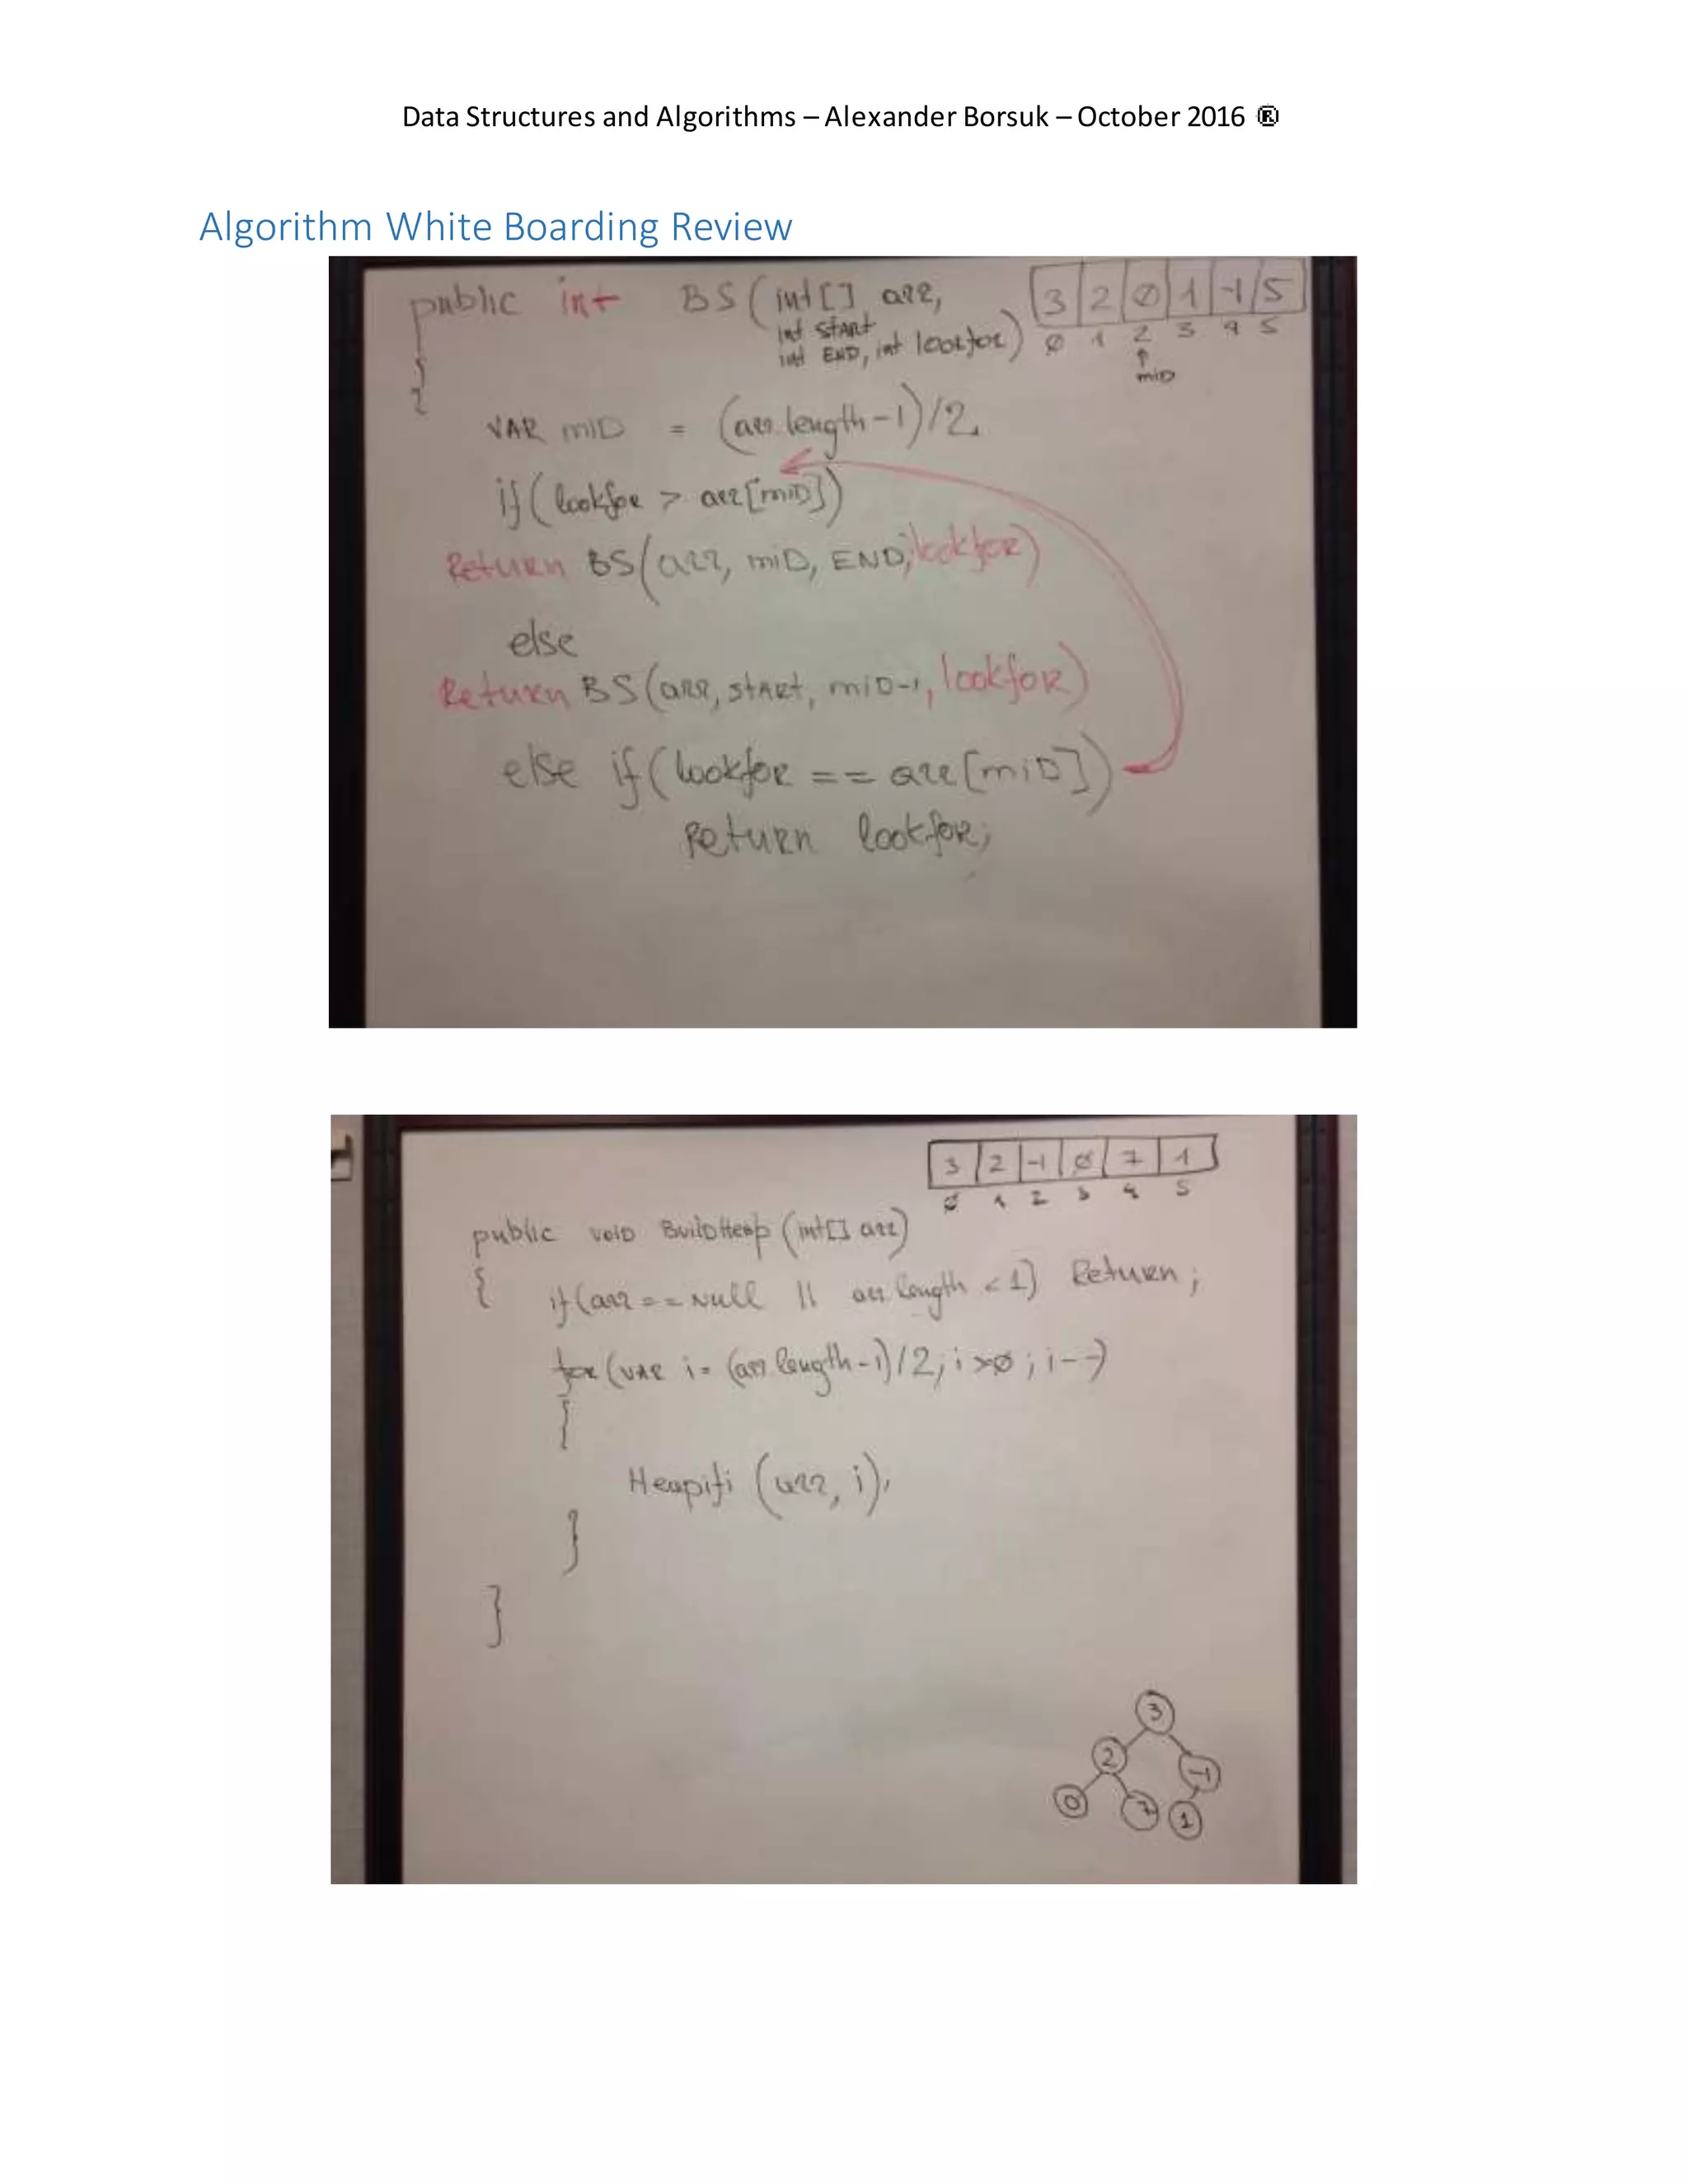 Data Structures and Algorithms – Alexander Borsuk – October 2016 ®
Algorithm White Boarding Review
public int BS(int[] arr,
int START
int END, int lookfor)
3 2 0 1 -1 5
0 1 2 3 4 5
↑
mid
{
VAR mID = (arr.length-1)/2
if(lookfor > arr[mID])
Return BS(arr, miD, END, lookfor)
else
Return BS(arr, start, miD-1, lookfor)
else if(lookfor == arr[miD])
Return lookfor;
3 2 -1 0 7 1
0 1 2 3 4 5
public void BuildHeap (int[] arr)
{ if(arr == Null || arr.length < 1) Return;
for(VAR i = (arr.length-1)/2; i >0; i--)
{
Heapifi (arr, i);
}
}
3
2 -1
0 7 1